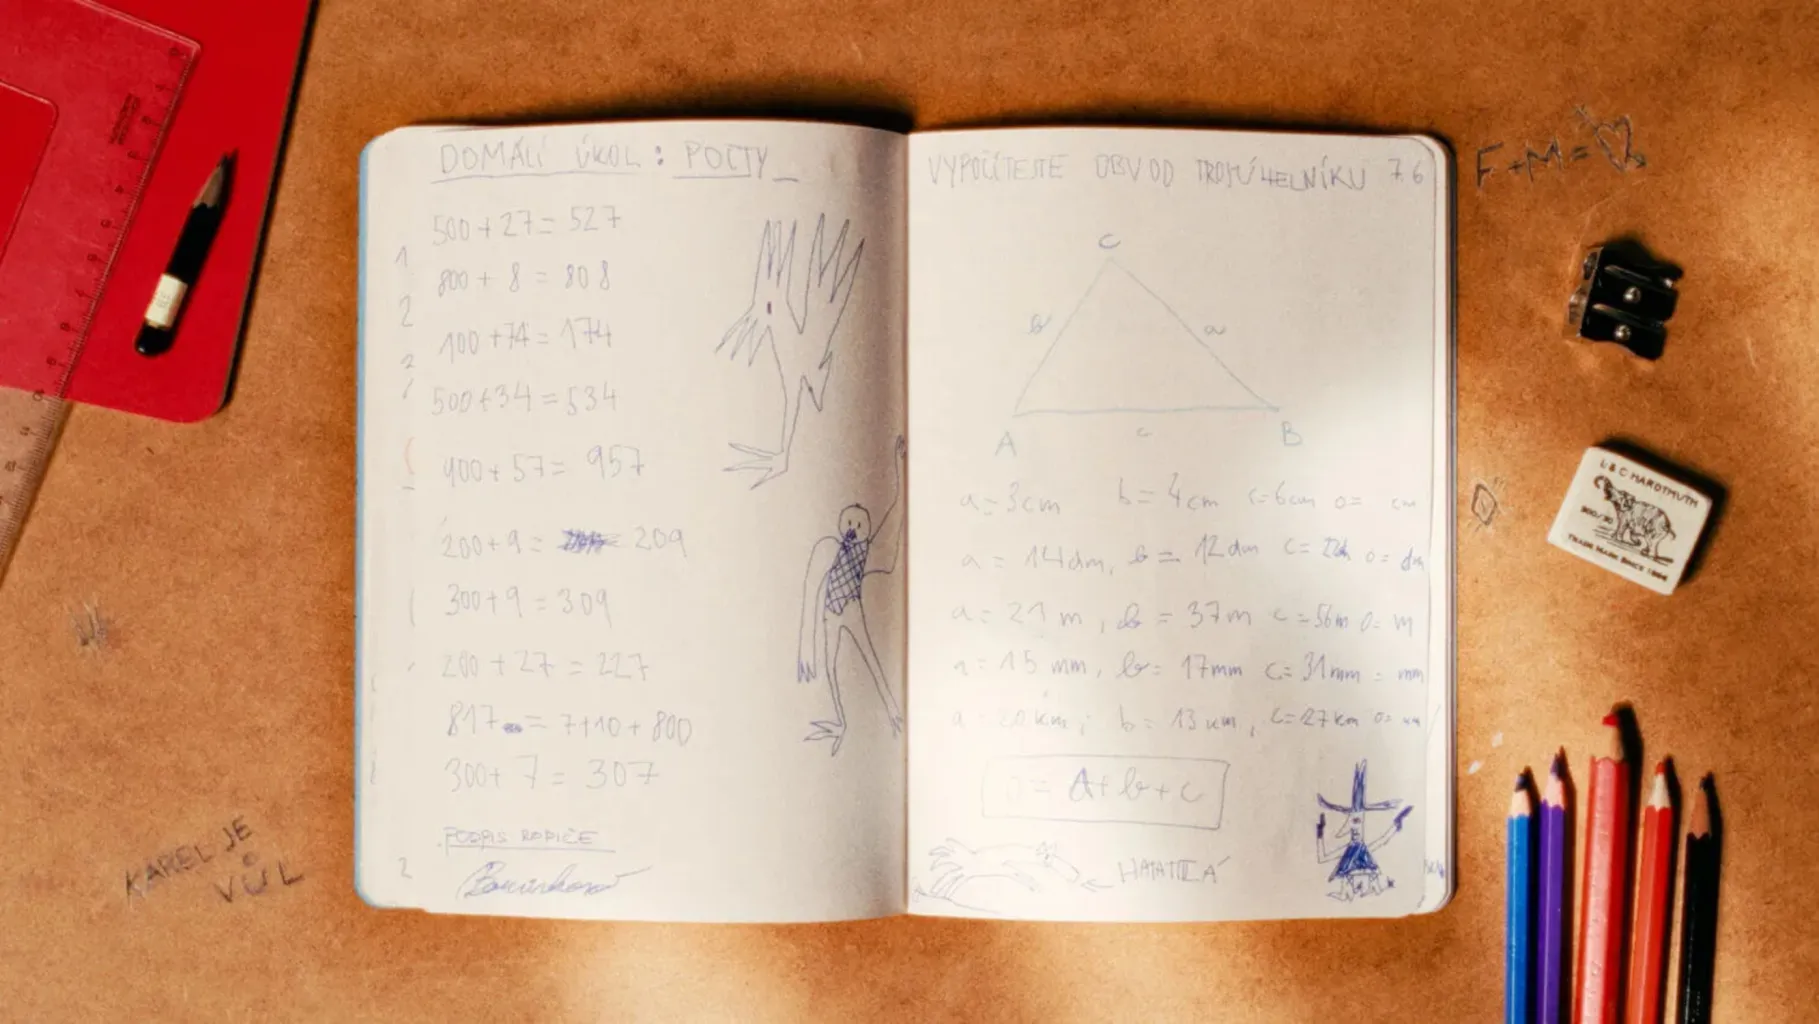 DOMÁCÍ ÚKOL: POČTY
500 + 27 = 527
800 + 8 = 808
100 + 74 = 174
500 + 34 = 534
900 + 57 = 957
200 + 9 = 209
300 + 9 = 309
200 + 27 = 227
817 = 7+10+800
300 + 7 = 307
PODPIS RODIČE
VYPOČÍTEJTE OBVOD TROJÚHELNÍKU 7.6
C
b a
A c B
a = 3cm b = 4cm c = 6cm o = cm
a = 14dm, b = 12dm c = o = dm
a = 21 m, b = 37m c = 56m o = m
a = 15 mm, b = 17mm c = 31mm = mm
a = 20 km, b = 13 km, c = 27km o = km
o = A + b + c
F + M =
L&C HARDTMUTH
300/30
TRADE MARK SINCE
KAREL JE
VŮL